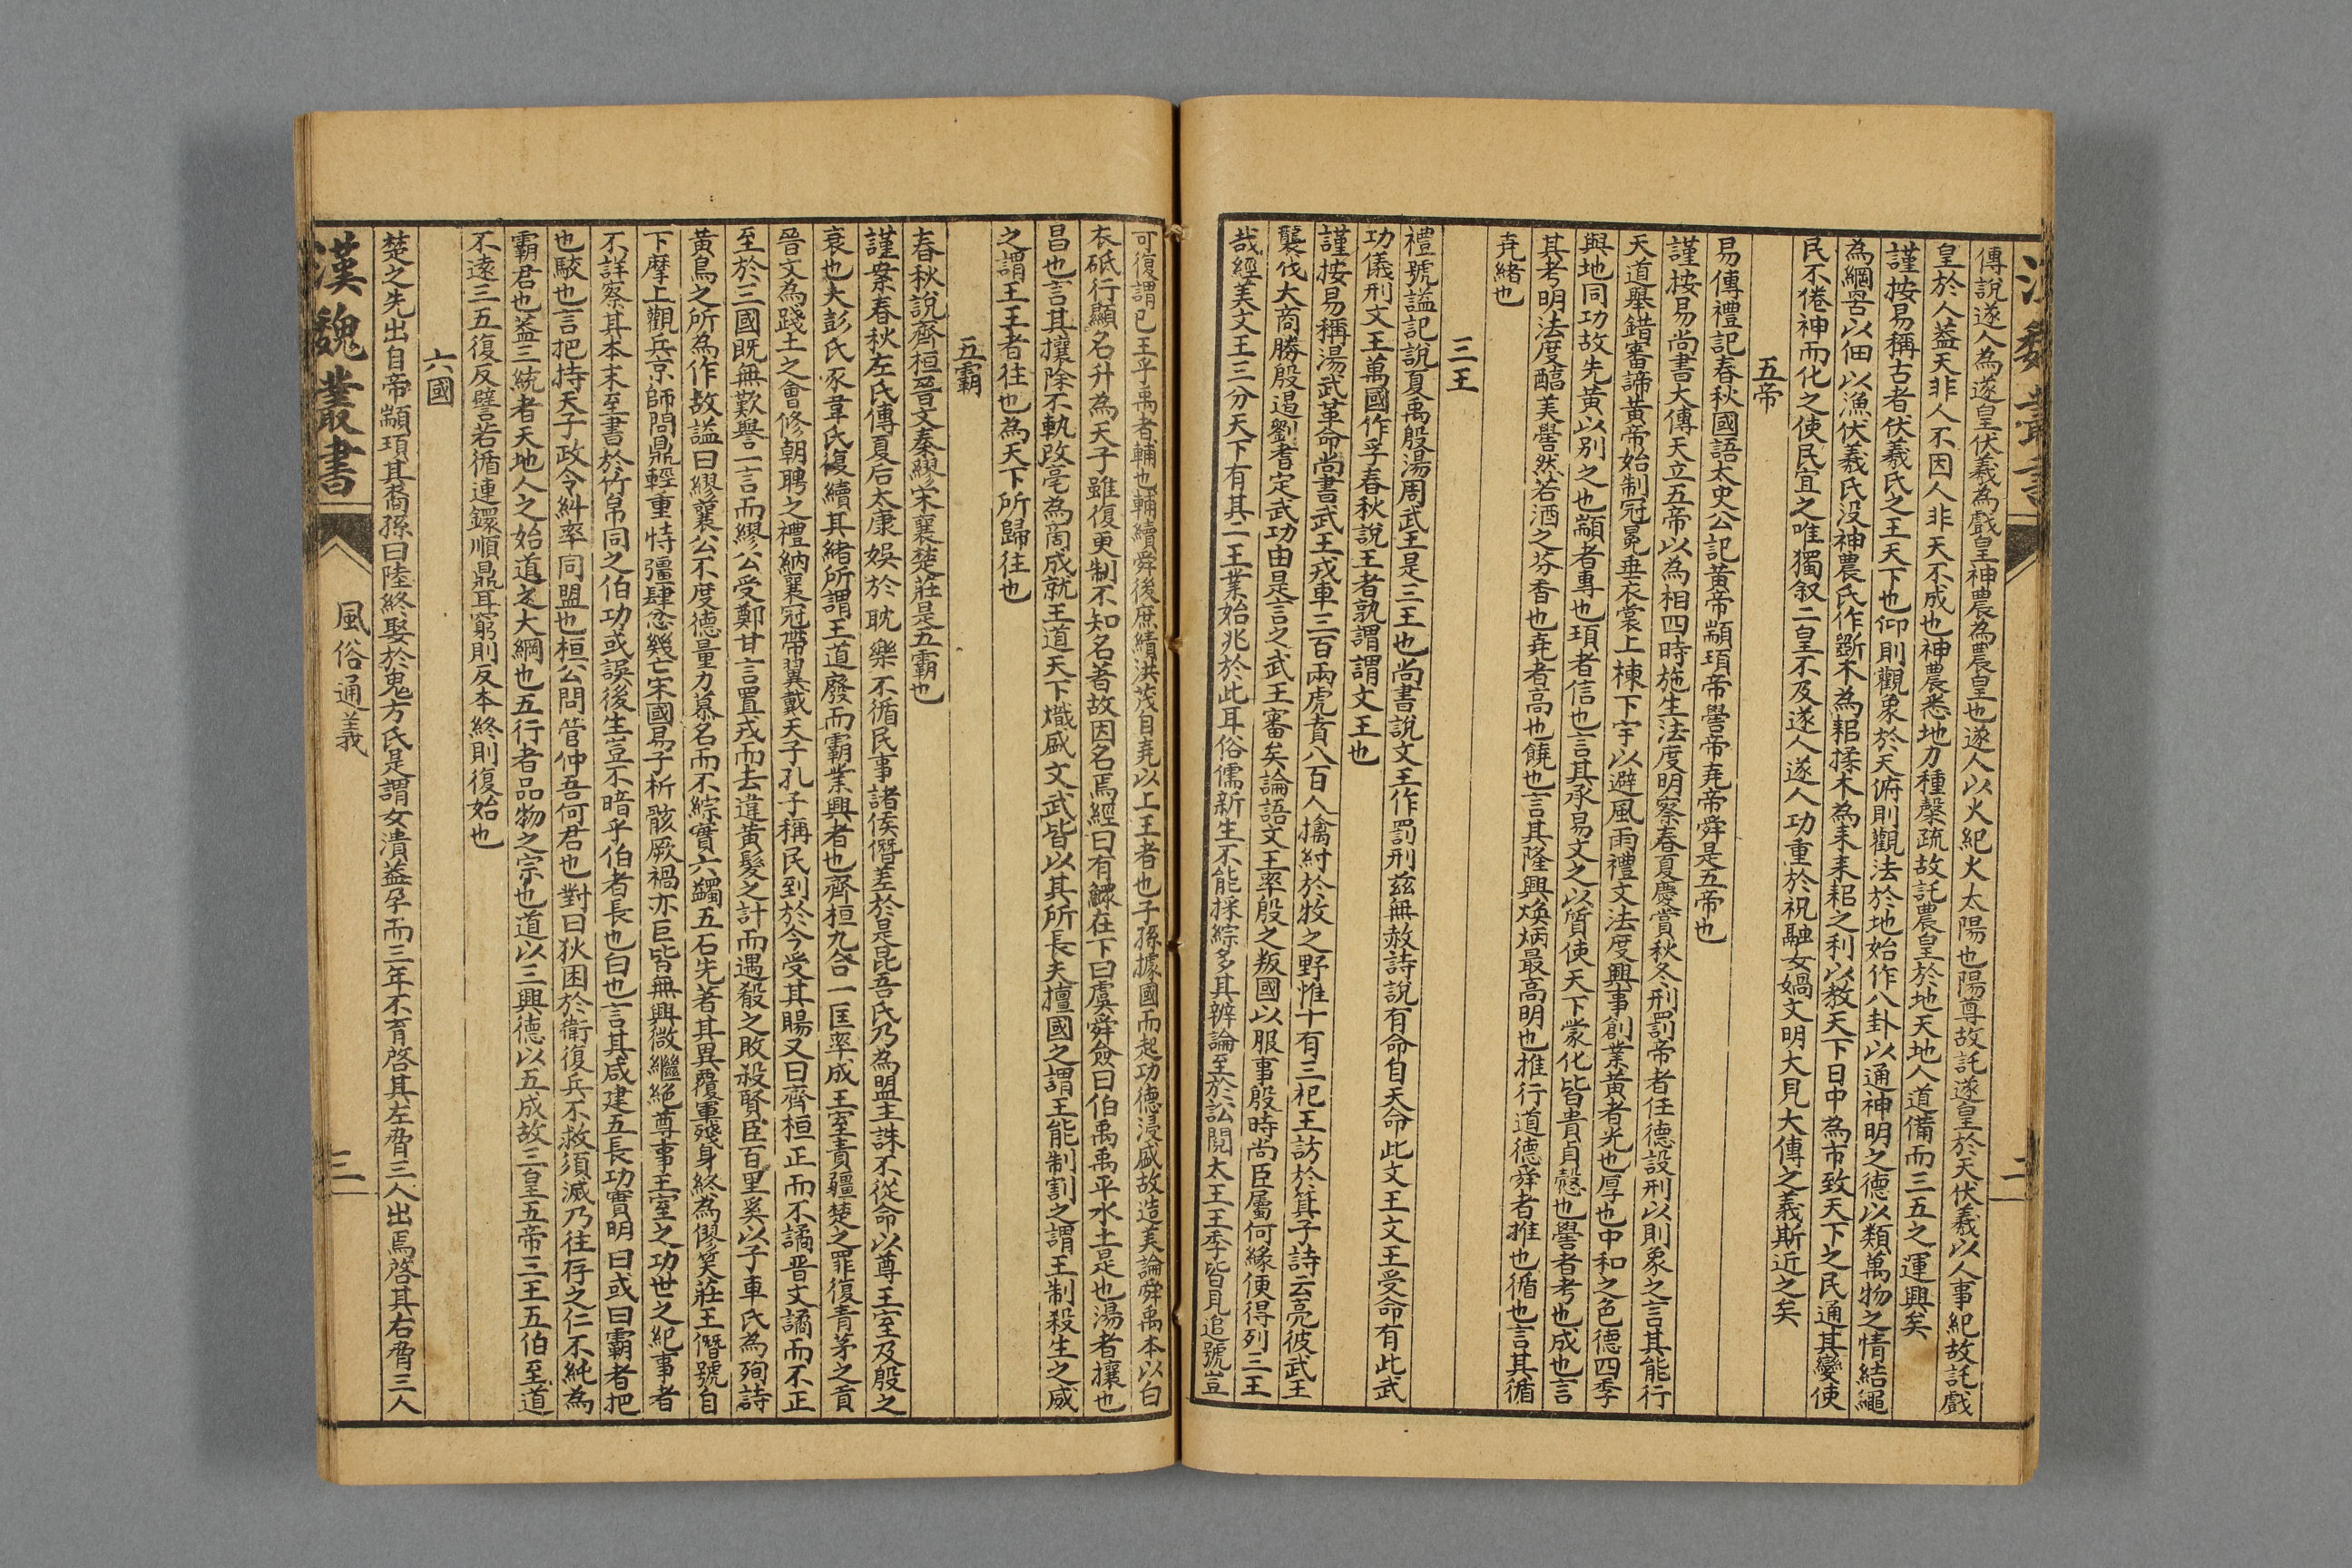 傳說遂人為遂皇伏羲為戲皇神農為農皇也遂人以火紀火太陽也陽尊故託遂皇於天伏羲以人事紀故託戲
皇於人葢天非人不因人非天不成也神農悉地力種榖疏故託農皇於地天地人道備而三五之運興矣
謹按易稱古者伏羲氏之王天下也仰則觀象於天俯則觀法於地始作八卦以通神明之德以類萬物之情結繩
為綱罟以佃以漁伏羲氏没神農氏作斲木為耜揉木為耒耒耜之利以教天下日中為市致天下之民通其變使
民不倦神而化之使民宜之唯獨叙二皇不及遂人遂人功重於祝融女媧文明大見大傳之義斯近之矣
五帝
易傳禮記春秋國語太史公記黃帝顓頊帝嚳帝堯帝舜是五帝也
謹按易尚書大傳天立五帝以為相四時施生法度明察春夏慶賞秋冬刑罰帝者任德設刑以則象之言其能行
天道舉錯審諦黃帝始制冠冕垂衣裳上棟下宇以避風雨禮文法度興事創業黃者光也厚也中和之色德四季
與地同功故先黃以別之也顓者專也頊者信也言其承易文之以質使天下蒙化皆貴貞愨也嚳者考也成也言
其考明法度醕美嚳然若酒之芬香也堯者高也饒也言其隆興煥炳最高明也推行道德舜者推也循也言其循
堯緒也
三王
禮號諡記說夏禹殷湯周武王是三王也尚書說文王作罰刑兹無赦詩說有命自天命此文王文王受命有此武
功儀刑文王萬國作孚春秋說王者孰謂謂文王也
謹按易稱湯武革命尚書武王戎車三百兩虎賁八百人擒紂於牧之野惟十有三祀王訪於箕子詩云亮彼武王
襲伐大商勝殷遏劉耆定武功由是言之武王審矣論語文王率殷之叛國以服事殷時尚臣屬何緣便得列三王
哉經美文王三分天下有其二王業始兆於此耳俗儒新生不能採綜多其辨論至於訟閱太王王季皆見追號豈
可復謂已王乎禹者輔也輔續舜後庶績洪茂自堯以上王者也子孫據國而起功德浸盛故造美論舜禹本以白
衣砥行顯名升為天子雖復更制不知名著故因名焉經曰有鰥在下曰虞舜僉曰伯禹禹平水土是也湯者攘也
昌也言其攘除不軌改亳為商成就王道天下熾盛文武皆以其所長夫擅國之謂王能制割之謂王制殺生之威
之謂王王者往也為天下所歸往也
五霸
春秋說齊桓晉文秦繆宋襄楚莊是五霸也
謹案春秋左氏傳夏后太康娛於耽樂不循民事諸侯僭差於是昆吾氏乃為盟主誅不從命以尊王室及殷之
衰也大彭氏豕韋氏復續其緒所謂王道廢而霸業興者也齊桓九合一匡率成王室責彊楚之罪復青茅之貢
晉文為踐土之會修朝聘之禮納襄冠帶翼戴天子孔子稱民到於今受其賜又曰齊桓正而不譎晉文譎而不正
至於三國既無歎譽一言而繆公受鄭甘言置戎而去違黃髮之計而遇殽之敗殺賢臣百里奚以子車氏為殉詩
黃鳥之所為作故諡曰繆襄公不度德量力慕名而不綜實六鷁五石先著其異覆軍殘身終為僇笑莊王僭號自
下摩上觀兵京師問鼎輕重恃彊肆忿幾亡宋國易子析骸厥禍亦巨皆無興微繼絶尊事王室之功世之紀事者
不詳察其本末至書於竹帛同之伯功或誤後生豈不暗乎伯者長也白也言其咸建五長功實明曰或曰霸者把
也駮也言把持天子政令糾率同盟也桓公問管仲吾何君也對曰狄困於衛復兵不救須滅乃往存之仁不純為
霸君也葢三統者天地人之始道之大綱也五行者品物之宗也道以三興德以五成故三皇五帝三王五伯至道
不遠三五復反譬若循連鐶順鼎耳窮則反本終則復始也
六國
楚之先出自帝顓頊其裔孫曰陸終娶於鬼方氏是謂女潰葢孕而三年不育啓其左脅三人出焉啓其右脅三人
漢魏叢書
風俗通義
三
二